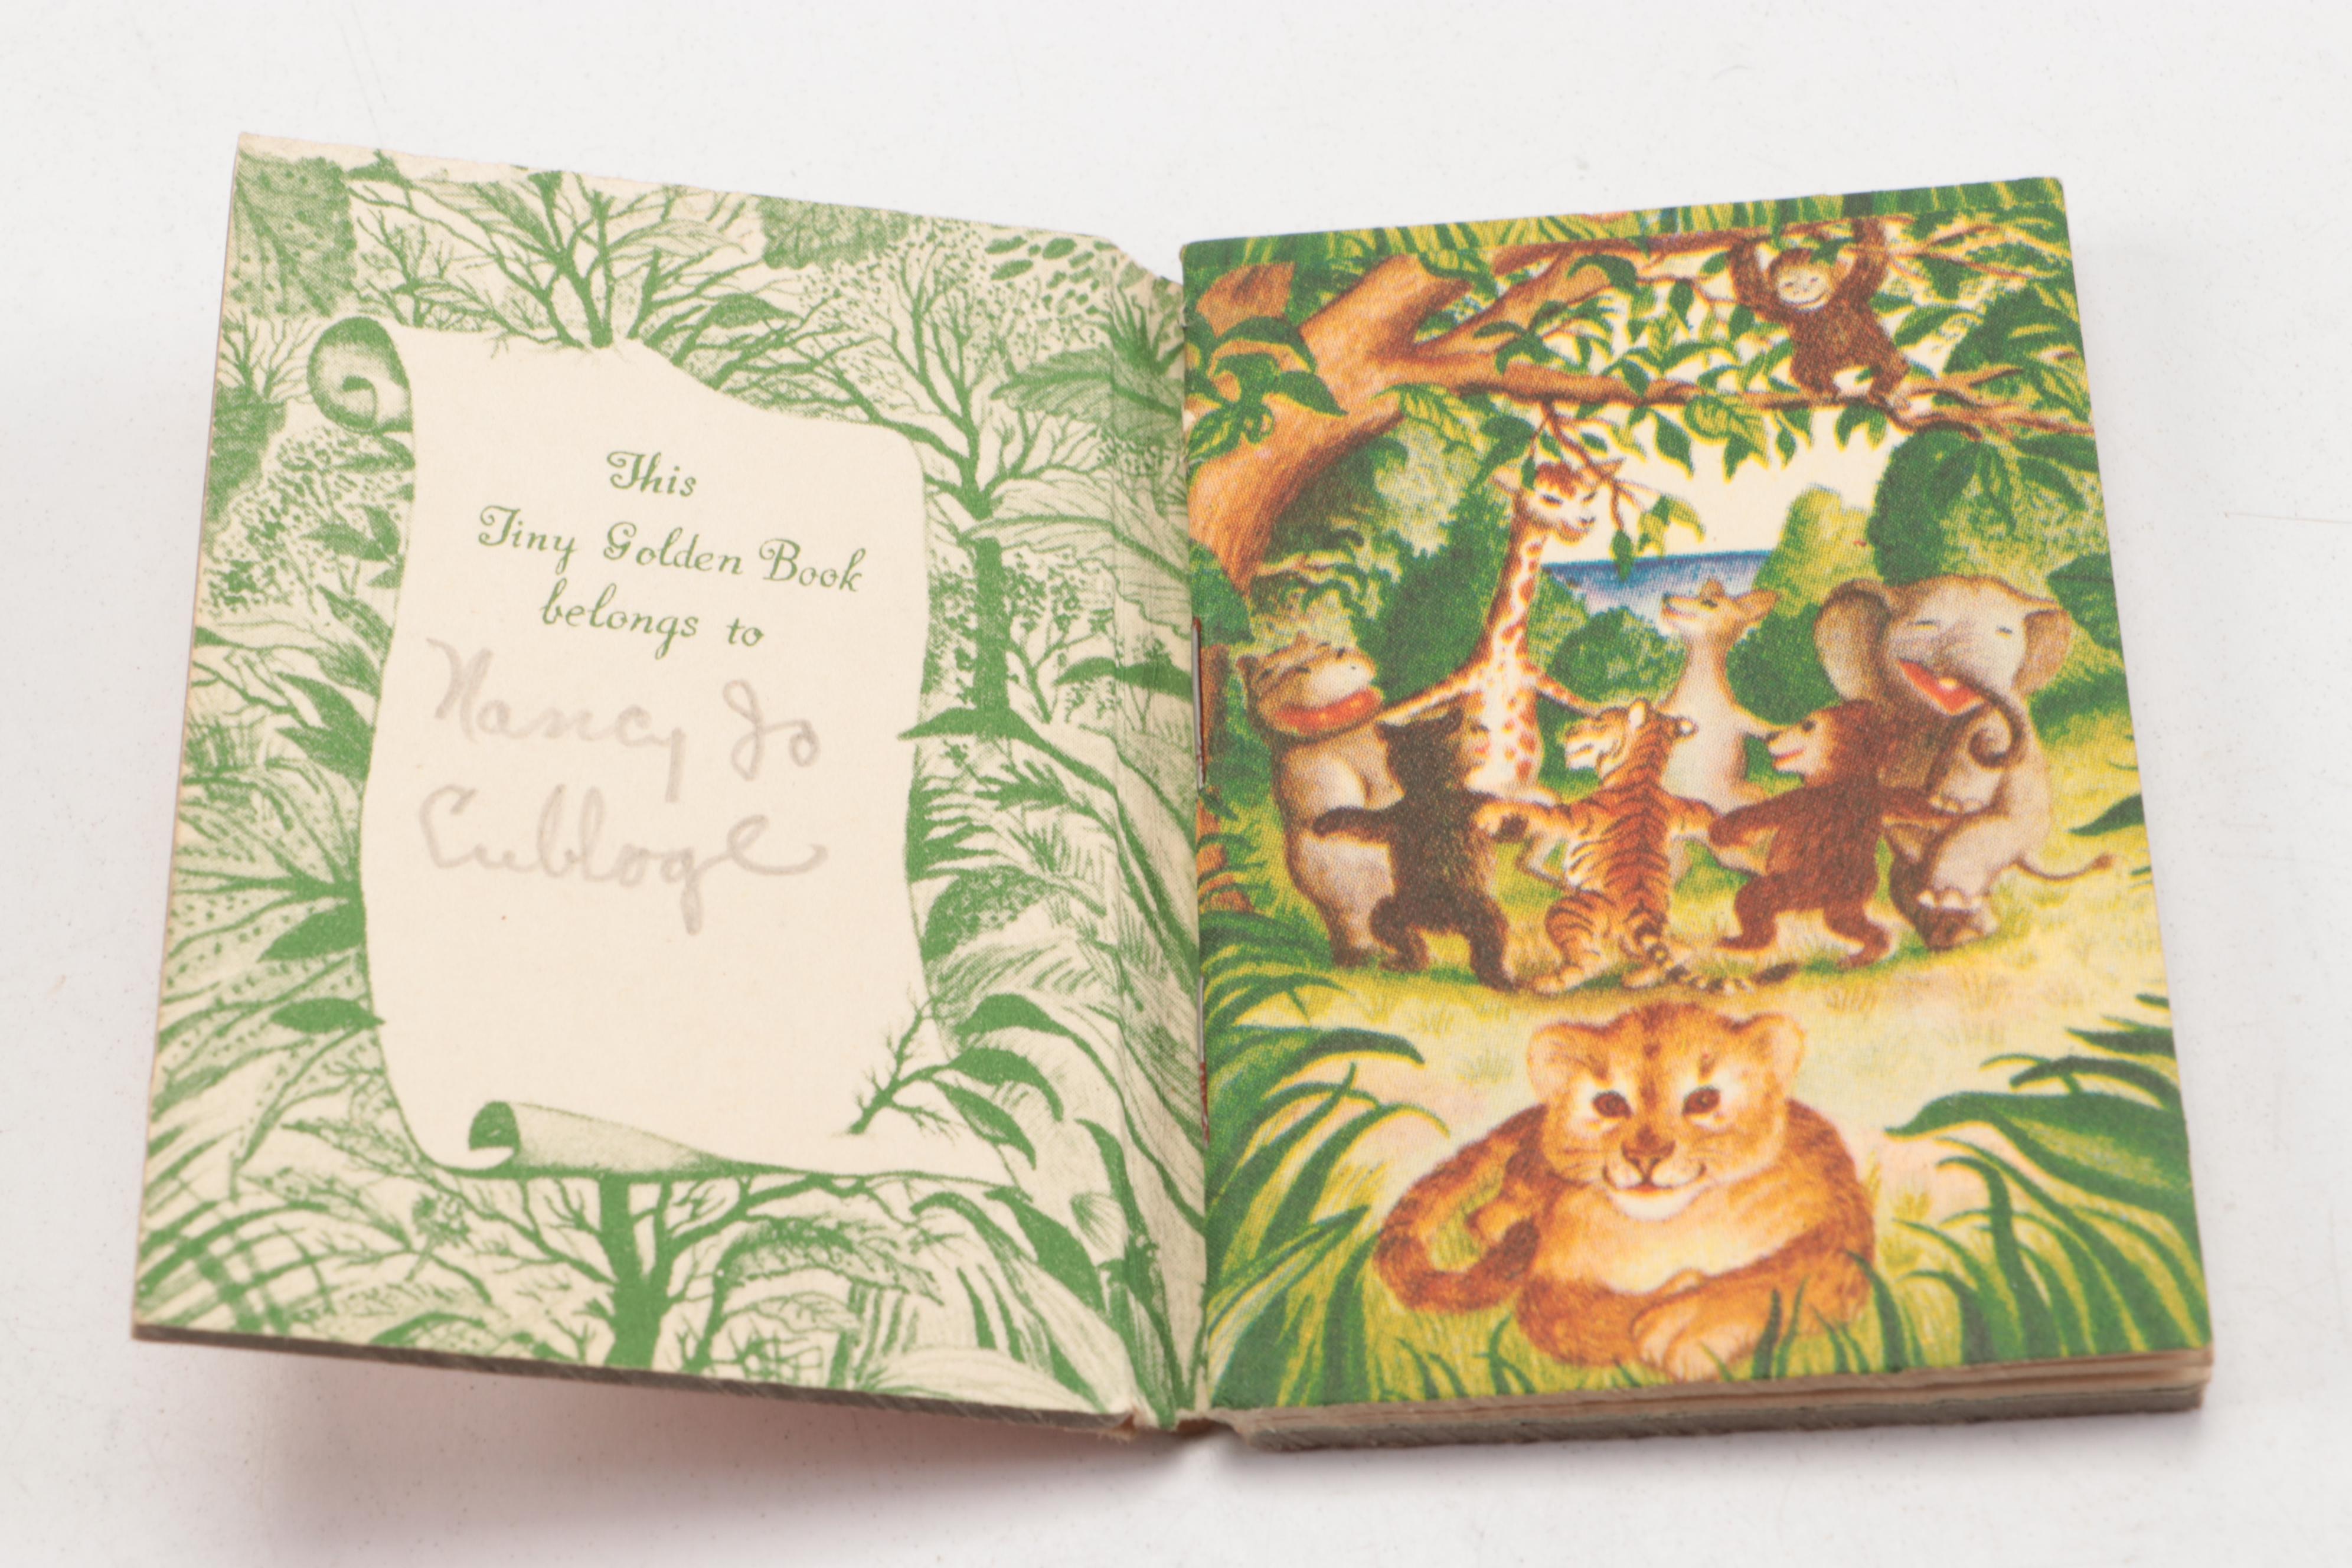 This
Tiny Golden Book
belongs to
Nancy Jo